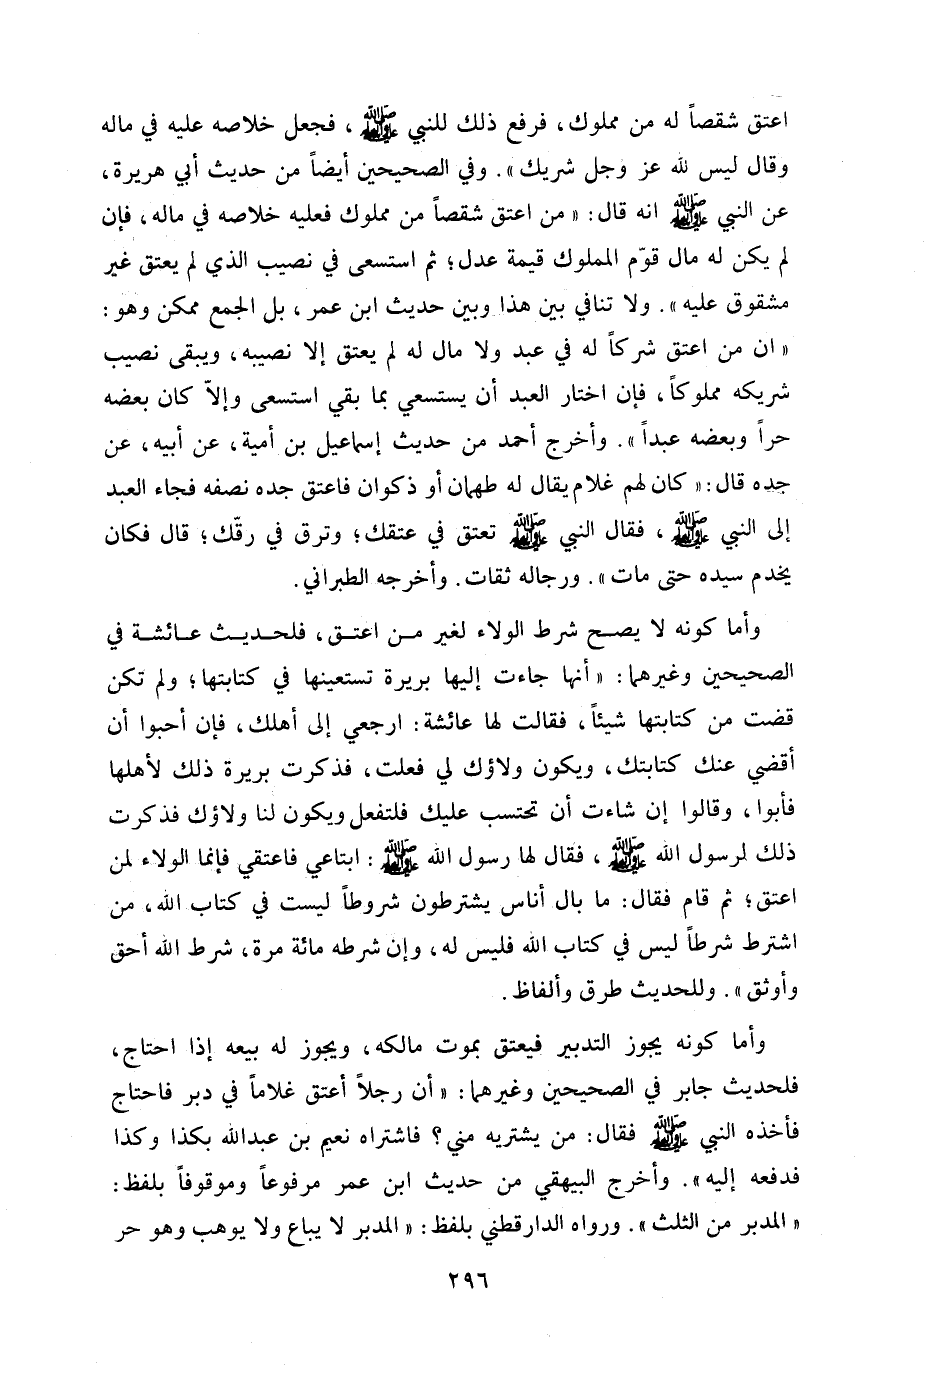 اعتق شقصاً له من مملوك، فرفع ذلك للنبي ﷺ ، فجعل خلاصه عليه في ماله
وقال ليس لله عز وجل شريك». وفي الصحيحين أيضاً من حديث أبي هريرة،
عن النبي ﷺ انه قال: « من اعتق شقصاً من مملوك فعليه خلاصه في ماله، فإن
لم يكن له مال قوّم المملوك قيمة عدل؛ ثم استسعى في نصيب الذي لم يعتق غير
مشقوق عليه». ولا تنافي بين هذا وبين حديث ابن عمر، بل الجمع ممكن وهو:
« ان من اعتق شركاً له في عبد ولا مال له لم يعتق إلا نصيبه، ويبقى نصيب
شريكه مملوكاً، فإن اختار العبد أن يستسعي بما بقي استسعى وإلاّ كان بعضه
حراً وبعضه عبداً». وأخرج أحمد من حديث إسماعيل بن أمية، عن أبيه، عن
جده قال: « كان لهم غلام يقال له طهمان أو ذكوان فاعتق جده نصفه فجاء العبد
إلى النبي ﷺ ، فقال النبي ﷺ تعتق في عتقك؛ وترق في رقّك؛ قال فكان
يخدم سيده حتى مات». ورجاله ثقات. وأخرجه الطبراني.
وأما كونه لا يصح شرط الولاء لغير من اعتق، فلحديث عائشة في
الصحيحين وغيرهما: « أنها جاءت إليها بريرة تستعينها في كتابتها؛ ولم تكن
قضت من كتابتها شيئاً، فقالت لها عائشة: ارجعي إلى أهلك، فإن أحبوا أن
أقضي عنك كتابتك، ويكون ولاؤك لي فعلت، فذكرت بريرة ذلك لأهلها
فأبوا، وقالوا إن شاءت أن تحتسب عليك فلتفعل ويكون لنا ولاؤك فذكرت
ذلك لرسول الله ﷺ ، فقال لها رسول الله ﷺ : ابتاعي فاعتقي فإنما الولاء لمن
اعتق؛ ثم قام فقال: ما بال أناس يشترطون شروطاً ليست في كتاب الله، من
اشترط شرطاً ليس في كتاب الله فليس له، وإن شرطه مائة مرة، شرط الله أحق
وأوثق». وللحديث طرق وألفاظ.
وأما كونه يجوز التدبير فيعتق بموت مالكه، ويجوز له بيعه إذا احتاج،
فلحديث جابر في الصحيحين وغيرهما: « أن رجلاً أعتق غلاماً في دبر فاحتاج
فأخذه النبي ﷺ فقال: من يشتريه مني؟ فاشتراه نعيم بن عبدالله بكذا وكذا
فدفعه إليه». وأخرج البيهقي من حديث ابن عمر مرفوعاً وموقوفاً بلفظ:
« المدبر من الثلث». ورواه الدارقطني بلفظ: « المدبر لا يباع ولا يوهب وهو حر
٢٩٦